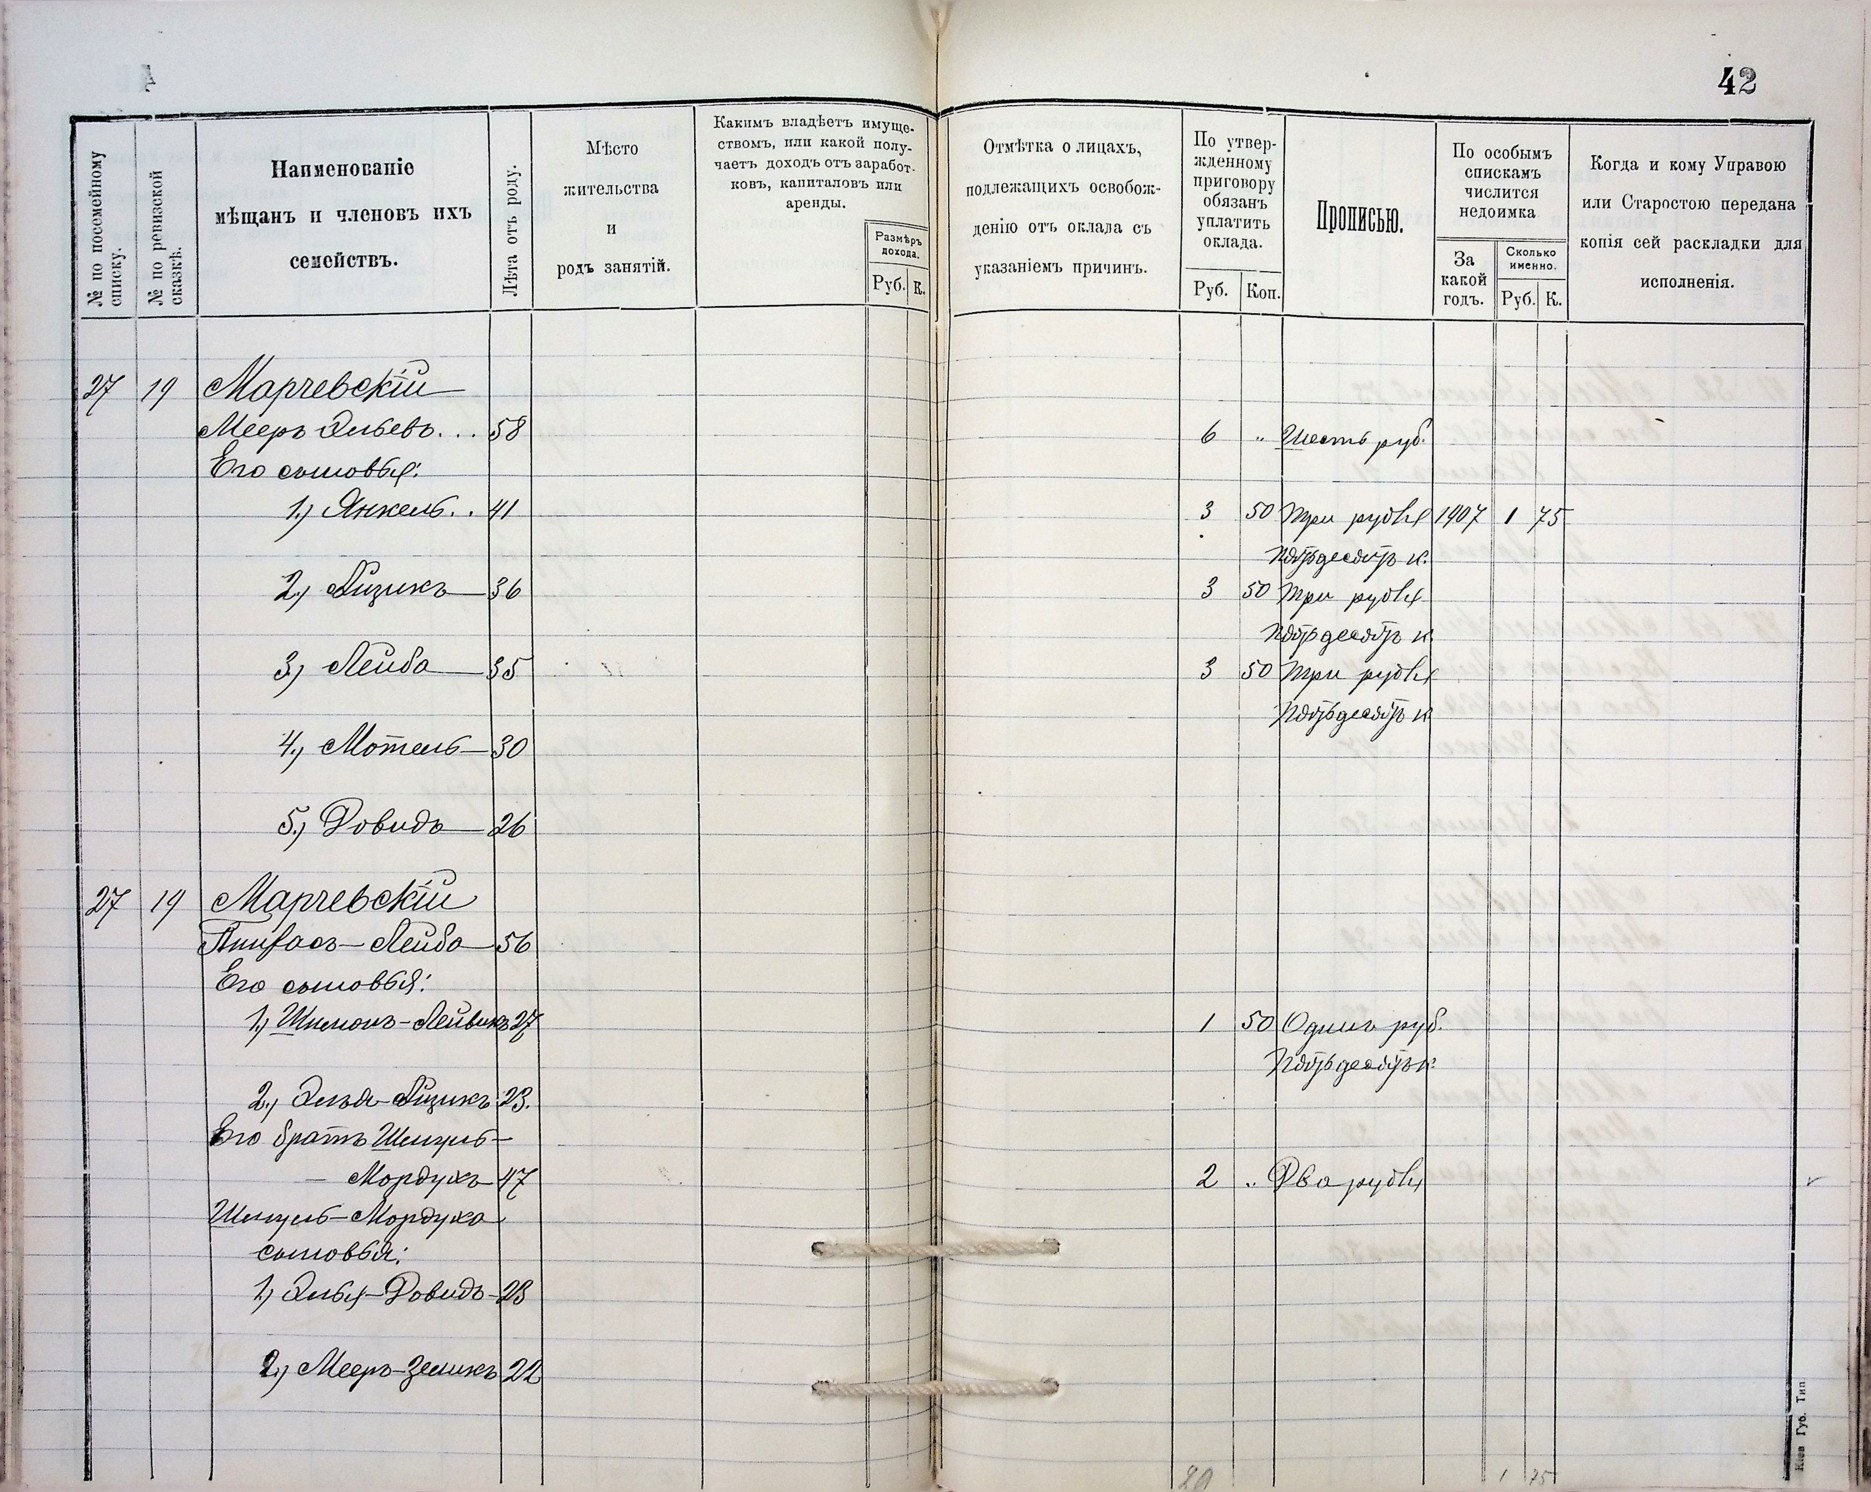 42
№ по посемейному списку.
№ по ревизской сказкѣ.
Наименованіе
мѣщанъ и членовъ ихъ
семействъ.
Лѣта отъ роду.
Мѣсто
жительства
и
родъ занятій.
Какимъ владѣетъ имуще-
ствомъ, или какой полу-
чаетъ доходъ отъ заработ-
ковъ, капиталовъ или
аренды.
Размѣръ
дохода.
Руб. К.
Отмѣтка о лицахъ,
подлежащихъ освобож-
денію отъ оклада съ
указаніемъ причинъ.
По утвер-
жденному
приговору
обязанъ
уплатить
оклада.
Руб. Коп.
Прописью.
По особымъ
спискамъ
числится
недоимка
За
какой
годъ.
Сколько
именно.
Руб. К.
Когда и кому Управою
или Старостою передана
копія сей раскладки для
исполненія.
27 19 Марчевскій
Мееръ Эльевъ... 58 6 „ Шесть руб.
Его сыновья:
1.) Янкель.. 41 3 50 Три рубля 1907 1 75
пятьдесятъ к.
2.) Айзикъ 36 3 50 Три рубля
пятьдесятъ к.
3.) Лейба 35 3 50 Три рубля
пятьдесятъ к.
4.) Мотель 30
5.) Довидъ 26
27 19 Марчевскій
Пинхасъ-Лейба 56
Его сыновья:
1.) Шимонъ-Лейвикъ 27 1 50 Одинъ руб.
пятьдесятъ к.
2.) Элья-Айзикъ 23.
Его братъ Шмуль-
- Мордухъ 47 2 „ Два рубля
Шмуль-Мордуха
сыновья:
1.) Элья-Довидъ 23
2.) Мееръ-Зеликъ 22
20 1 75
Кіев Губ. Тип